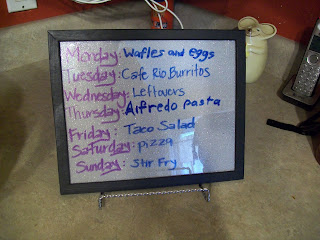 Monday: Wafles and Eggs
Tuesday: Cafe Rio Burritos
Wednesday: Leftovers
Thursday: Alfredo pasta
Friday: Taco Salad
Saturday: pizza
Sunday: Stir Fry